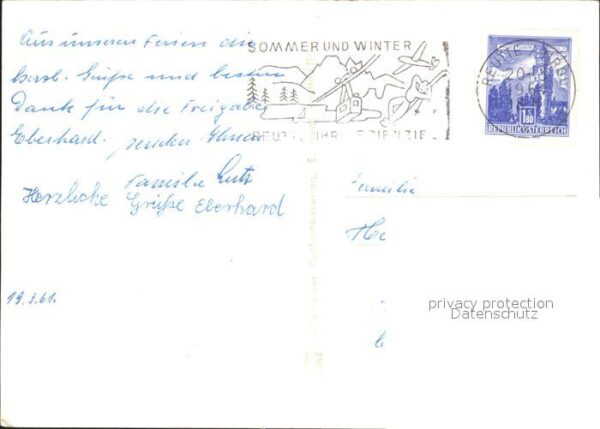 Aus unseren Ferien die
herzl. Grüße und besten
Dank für die Freigabe
Eberhard. senden Ihnen
Familie Lutz
Herzliche Grüße Eberhard
19.3.61.
SOMMER UND WINTER
REUTTE IHR FERIENZIEL
REUTTE
20
196
1.80
REPUBLIK ÖSTERREICH
Familie
He
privacy protection
Datenschutz